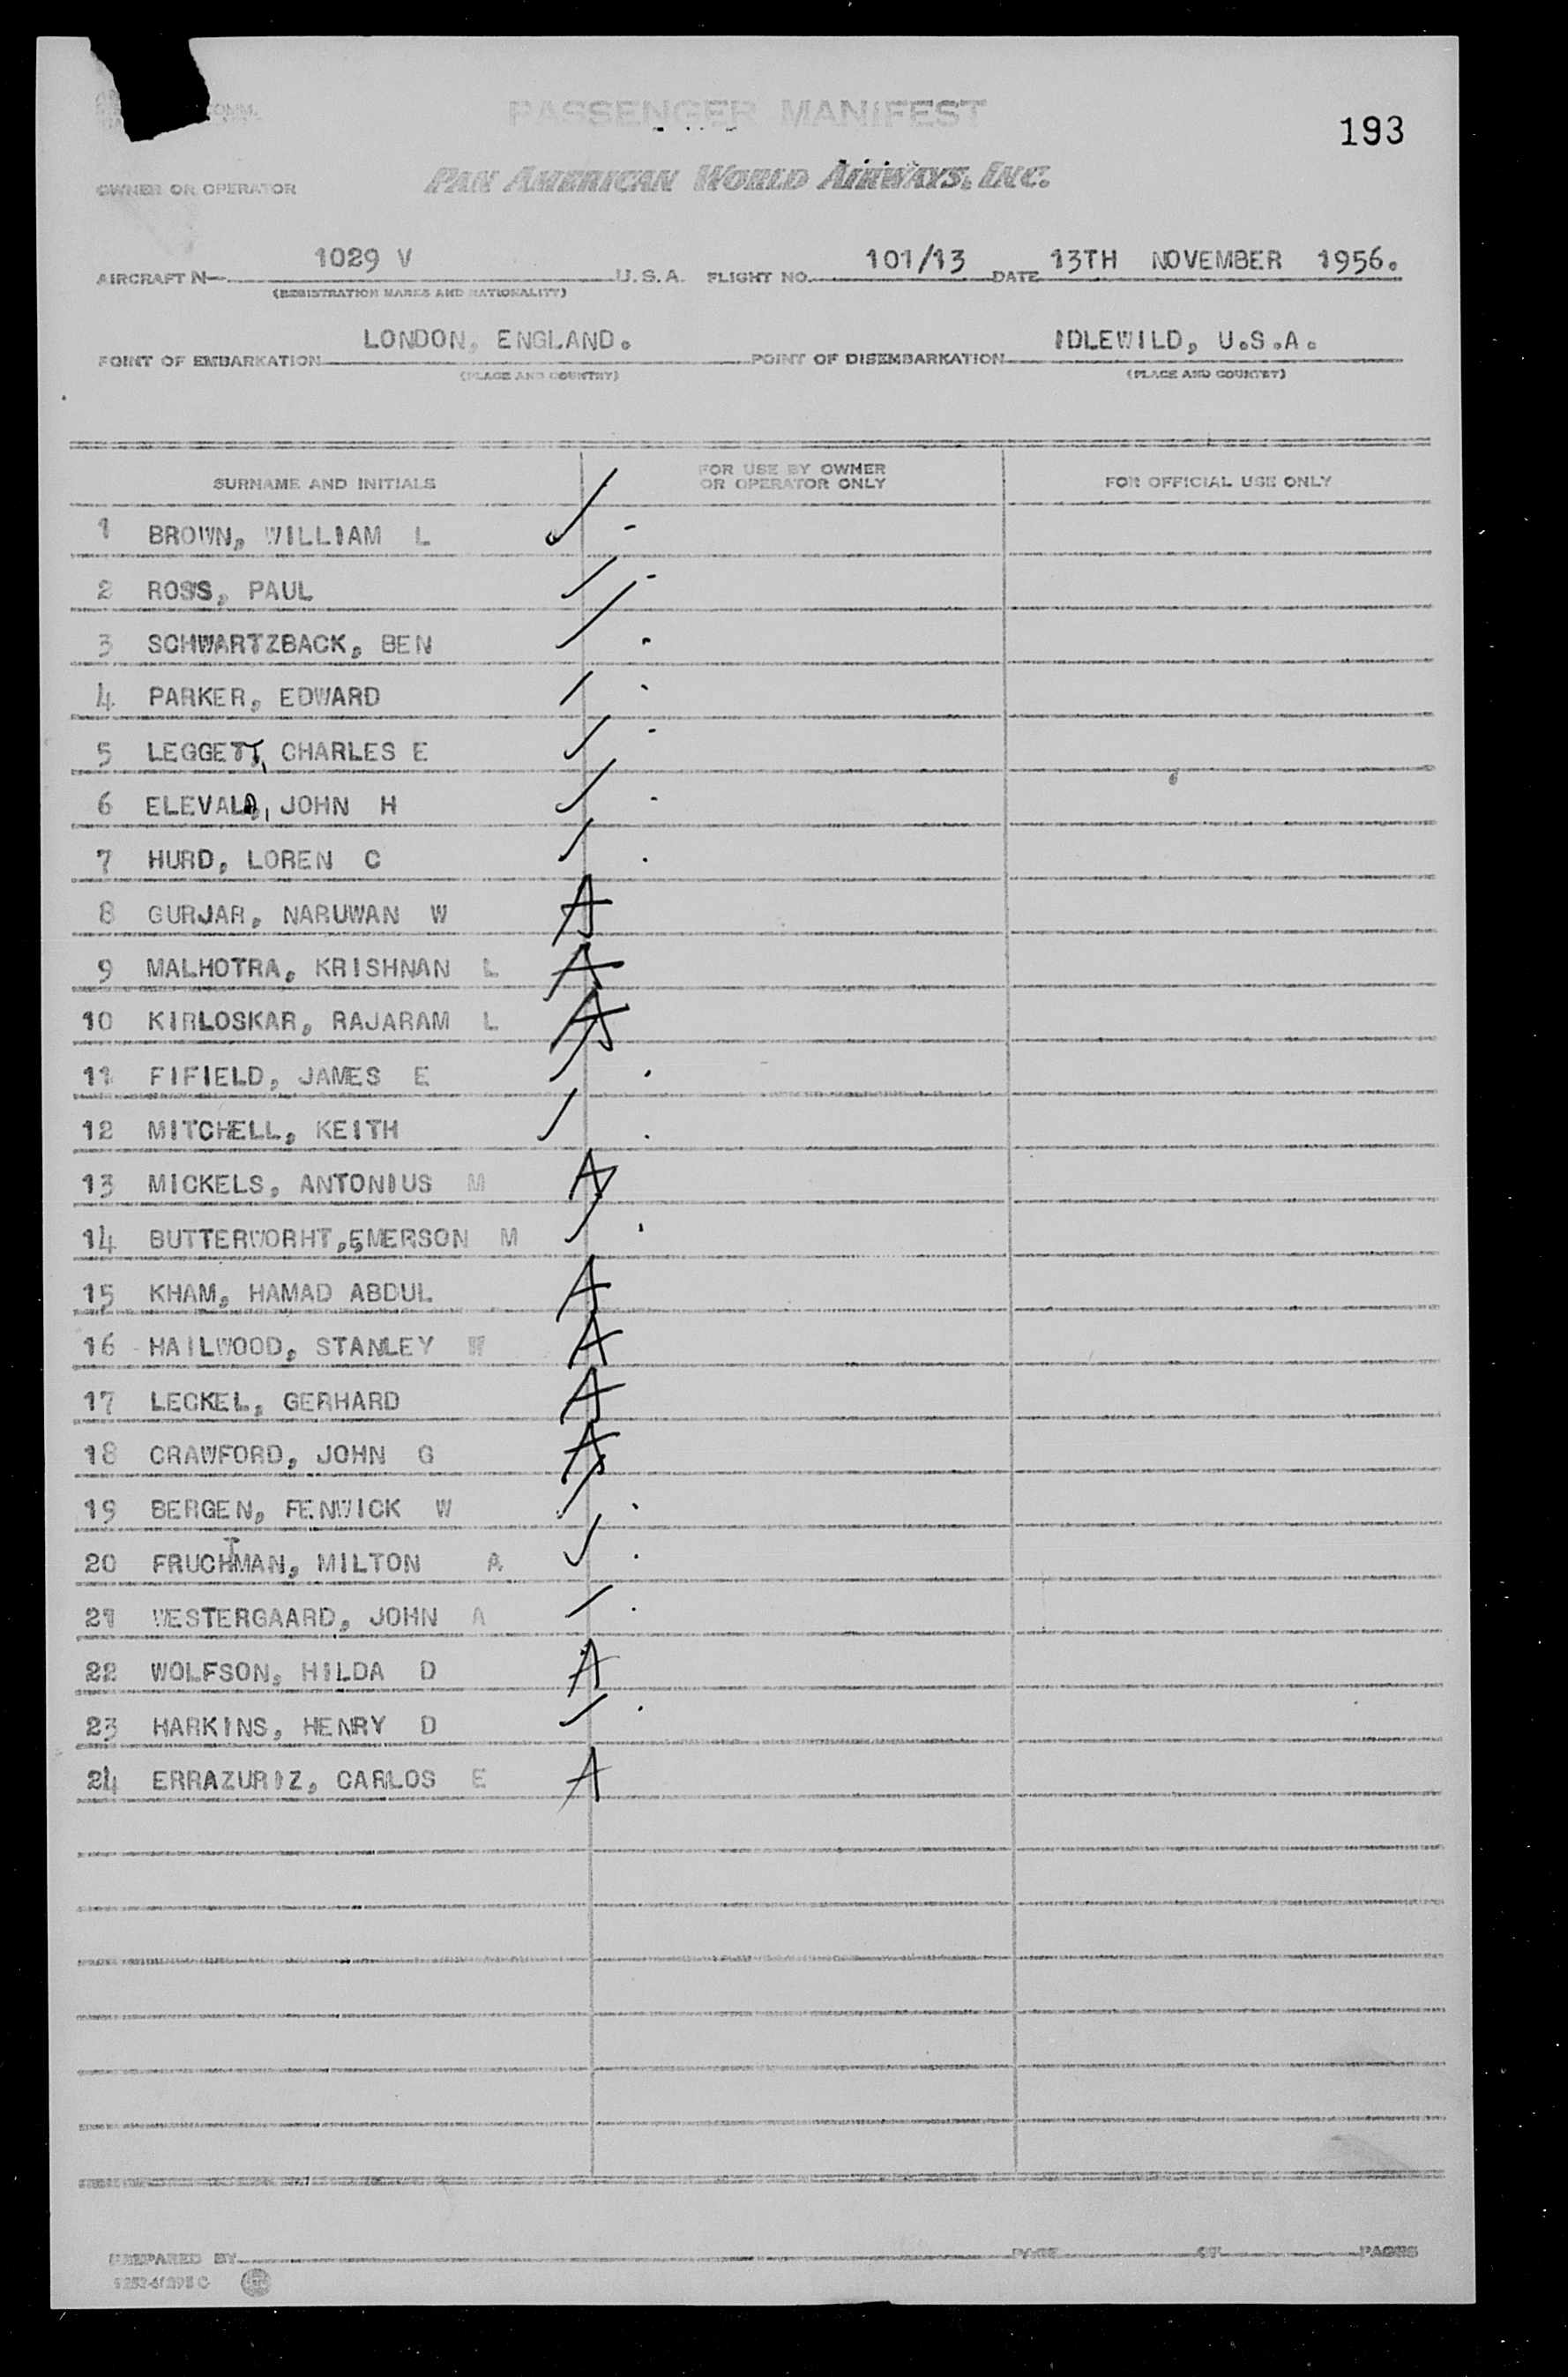 COMM.
PASSENGER MANIFEST
193
OWNER OR OPERATOR PAN AMERICAN WORLD AIRWAYS, INC.
AIRCRAFT N— 1029 V U.S.A. FLIGHT NO. 101/13 DATE 13TH NOVEMBER 1956.
(REGISTRATION MARKS AND NATIONALITY)
POINT OF EMBARKATION LONDON, ENGLAND. POINT OF DISEMBARKATION IDLEWILD, U.S.A.
(PLACE AND COUNTRY) (PLACE AND COUNTRY)
SURNAME AND INITIALS FOR USE BY OWNER OR OPERATOR ONLY FOR OFFICIAL USE ONLY
1 BROWN, WILLIAM L ✓ -
2 ROSS, PAUL / -
3 SCHWARTZBACK, BEN / -
4 PARKER, EDWARD / -
5 LEGGETT, CHARLES E ✓ -
6 ELEVALD, JOHN H ✓ -
7 HURD, LOREN C / .
8 GURJAR, NARUWAN W A
9 MALHOTRA, KRISHNAN L A
10 KIRLOSKAR, RAJARAM L A
11 FIFIELD, JAMES E / .
12 MITCHELL, KEITH / .
13 MICKELS, ANTONIUS M A
14 BUTTERWORHT, EMERSON M / .
15 KHAM, HAMAD ABDUL A
16 HAILWOOD, STANLEY W A
17 LECKEL, GERHARD A
18 CRAWFORD, JOHN G A
19 BERGEN, FENWICK W / .
20 FRUCHTMAN, MILTON A ✓ .
21 WESTERGAARD, JOHN A / .
22 WOLFSON, HILDA D A
23 HARKINS, HENRY D ✓ .
24 ERRAZURIZ, CARLOS E A
PREPARED BY PAGE OF PAGES